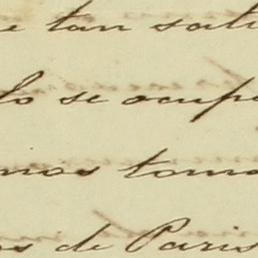 e tan sati
lo se ocup
mos toma
os de Paris